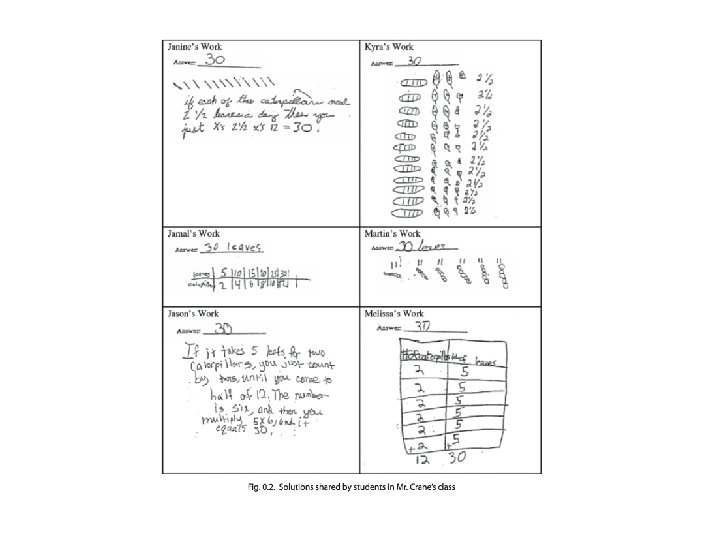 Janine's Work
Answer: 30
if each of the caterpillars need
2 1/2 leaves a day then you
just x's 2 1/2 x's 12 = 30.
Kyra's Work
Answer: 30
2 1/2
2 1/2
2 1/2
2 1/2
2 1/2
2 1/2
2 1/2
2 1/2
2 1/2
2 1/2
2 1/2
2 1/2
Jamal's Work
Answer: 30 leaves
leaves 5 10 15 20 25 30
2 4 6 8 10 12
Martin's Work
Answer: 30 leaves
Jason's Work
Answer: 30
If it takes 5 leafs for two
caterpillars, you just count
by twos, until you come to
half of 12. The number
is six, and then you
multiply 5x6, and it
equals 30.
Melissa's Work
Answer: 30
# of leaves
2 5
2 5
2 5
2 5
2 5
+2 +5
12 30
Fig. 0.2. Solutions shared by students in Mr. Crane's class